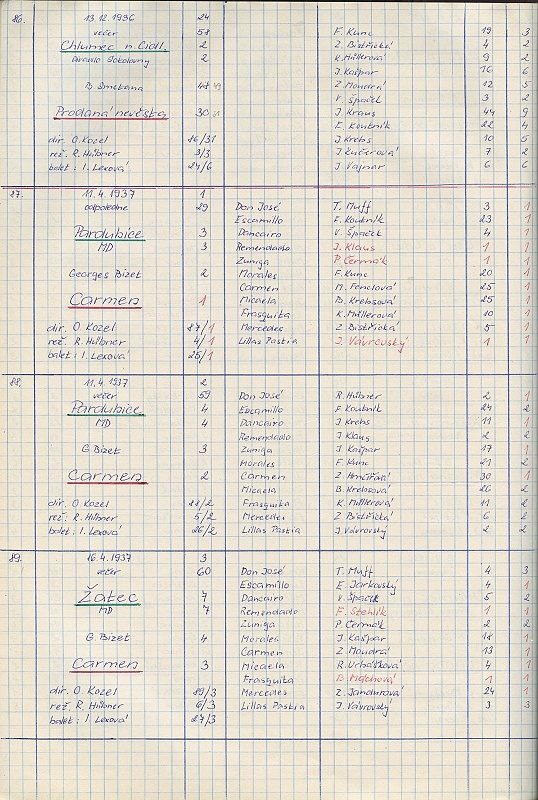 86. 13.12.1936 24
večer 58 F. Kunc 19 3
Chlumec n. Cidl. 2 Z. Bistřická 4 2
Divadlo Sokolovny 2 K. Müllerová 9 2
J. Kašpar 16 6
B. Smetana 48 49 Z. Mondrá 12 5
V. Špaček 3 2
Prodaná nevěsta 30 31 J. Kraus 44 9
F. Koubník 22 4
dir. O. Kozel 86/31 J. Krebs 10 5
rež. R. Hübner 3/3 J. Kučerová 7 2
balet: I. Lexová 24/6 J. Vajnar 6 6
87. 11.4.1937 1
odpoledne 29 Don José T. Muff 3 1
Escamillo F. Koubník 23 1
Pardubice 3 Dancairo V. Špaček 4 1
MD 3 Remendado J. Klaus 1 1
Zuniga P. Čermák 1 1
Georges Bizet 2 Morales F. Kunc 20 1
Carmen M. Fenclová 25 1
Carmen 1 Micaela B. Krebsová 25 1
Frasquita K. Müllerová 10 1
dir. O. Kozel 87/1 Mercedes Z. Bistřická 5 1
rež. R. Hübner 4/1 Lillas Pastia J. Vávrovský 1 1
balet: I. Lexová 25/1
88. 11.4.1937 2
večer 59 Don José R. Hübner 2 1
Pardubice 4 Escamillo F. Koubník 24 2
MD 4 Dancairo J. Krebs 11 1
Remendado J. Klaus 2 2
G. Bizet 3 Zuniga J. Kašpar 17 1
Morales F. Kunc 21 2
Carmen 2 Carmen 30 1
Micaela B. Krebsová 26 2
Frasquita K. Müllerová 11 2
dir. O. Kozel 88/2 Mercedes Z. Bistřická 6 2
rež. R. Hübner 5/2 Lillas Pastia J. Vávrovský 2 2
balet: I. Lexová 26/2
89. 16.4.1937 3
večer 60 Don José T. Muff 4 3
Escamillo E. Jarkovský 4 1
Žatec 7 Dancairo V. Špaček 5 2
MD 7 Remendado F. Stehlík 1 1
Zuniga P. Čermák 2 2
G. Bizet 4 Morales J. Kašpar 18 1
Carmen Z. Mondrá 13 1
Carmen 3 Micaela R. Urbášková 4 1
Frasquita B. 1 1
dir. O. Kozel 89/3 Mercedes Z. Jandurová 24 1
rež. R. Hübner 6/3 Lillas Pastia J. Vávrovský 3 3
balet: I. Lexová 27/3